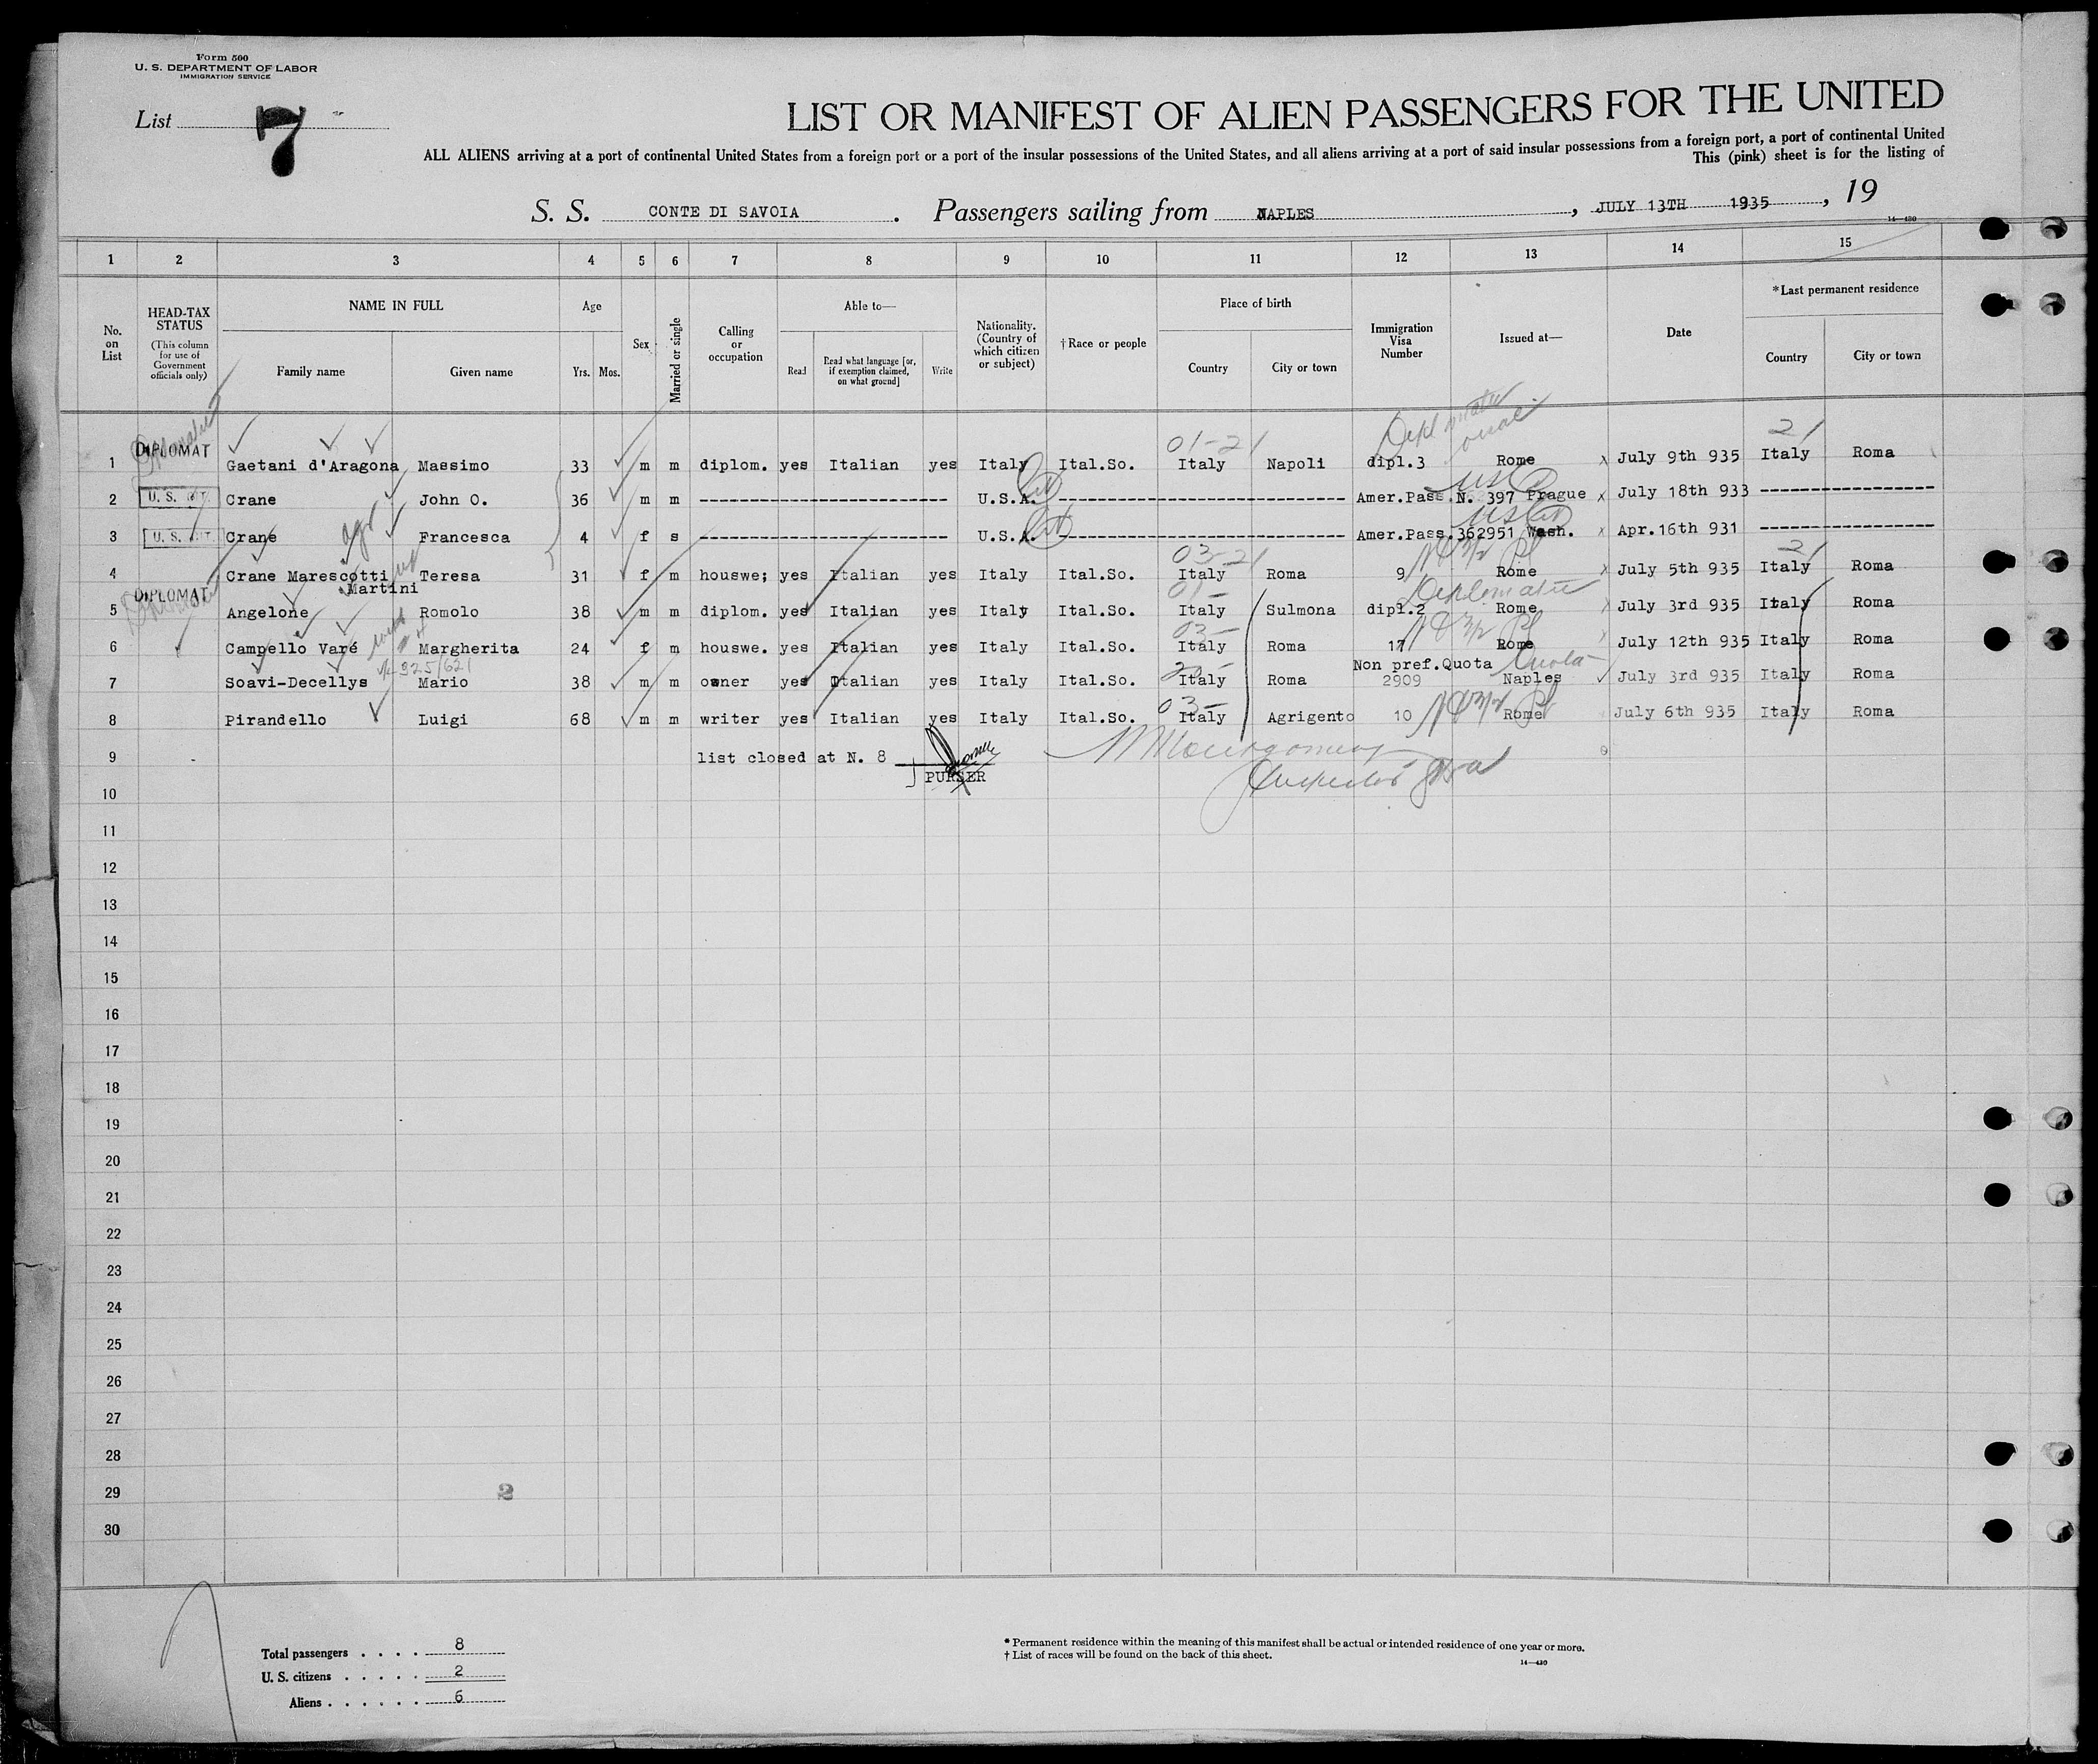 Form 500
U. S. DEPARTMENT OF LABOR
IMMIGRATION SERVICE
List 7
LIST OR MANIFEST OF ALIEN PASSENGERS FOR THE UNITED
ALL ALIENS arriving at a port of continental United States from a foreign port or a port of the insular possessions of the United States, and all aliens arriving at a port of said insular possessions from a foreign port, a port of continental United
This (pink) sheet is for the listing of
S. S. CONTE DI SAVOIA . Passengers sailing from NAPLES , JULY 13TH 1935 , 19
14—430
1 2 3 4 5 6 7 8 9 10 11 12 13 14 15
No. on List
HEAD-TAX STATUS (This column for use of Government officials only)
NAME IN FULL
Family name Given name
Age
Yrs. Mos.
Sex
Married or single
Calling or occupation
Able to—
Read Read what language [or, if exemption claimed, on what ground] Write
Nationality. (Country of which citizen or subject)
†Race or people
Place of birth
Country City or town
Immigration Visa Number
Issued at—
Date
*Last permanent residence
Country City or town
Diplomatic
01-21 21
DIPLOMAT
1 Gaetani d'Aragona Massimo 33 m m diplom. yes Italian yes Italy Ital.So. Italy Napoli dipl.3 Rome x July 9th 935 Italy Roma
2 U. S. CIT. Crane John O. 36 m m U.S.A. Amer.Pass. N. 397 Prague x July 18th 933
3 U. S. CIT. Crane Francesca 4 f s U.S.A. Amer.Pass. 362951 Wash. x Apr.16th 931
03-21 21
4 Crane Marescotti Teresa 31 f m houswe; yes Italian yes Italy Ital.So. Italy Roma 9 Rome x July 5th 935 Italy Roma
Martini
DIPLOMAT 01- Diplomatic
5 Angelone Romolo 38 m m diplom. yes Italian yes Italy Ital.So. Italy Sulmona dipl.2 Rome July 3rd 935 Italy Roma
03-
6 Campello Varé Margherita 24 f m houswe. yes Italian yes Italy Ital.So. Italy Roma 17 Rome July 12th 935 Italy Roma
325/621 Non pref.Quota Quota
7 Soavi-Decellys Mario 38 m m owner yes Italian yes Italy Ital.So. Italy Roma 2909 Naples July 3rd 935 Italy Roma
03-
8 Pirandello Luigi 68 m m writer yes Italian yes Italy Ital.So. Italy Agrigento 10 Rome July 6th 935 Italy Roma
9 list closed at N. 8
PURSER
Montgomery
Inspector
10
11
12
13
14
15
16
17
18
19
20
21
22
23
24
25
26
27
28
29 2
30
Total passengers . . . . 8
U. S. citizens . . . . . 2
Aliens . . . . . . 6
* Permanent residence within the meaning of this manifest shall be actual or intended residence of one year or more.
† List of races will be found on the back of this sheet.
14—430